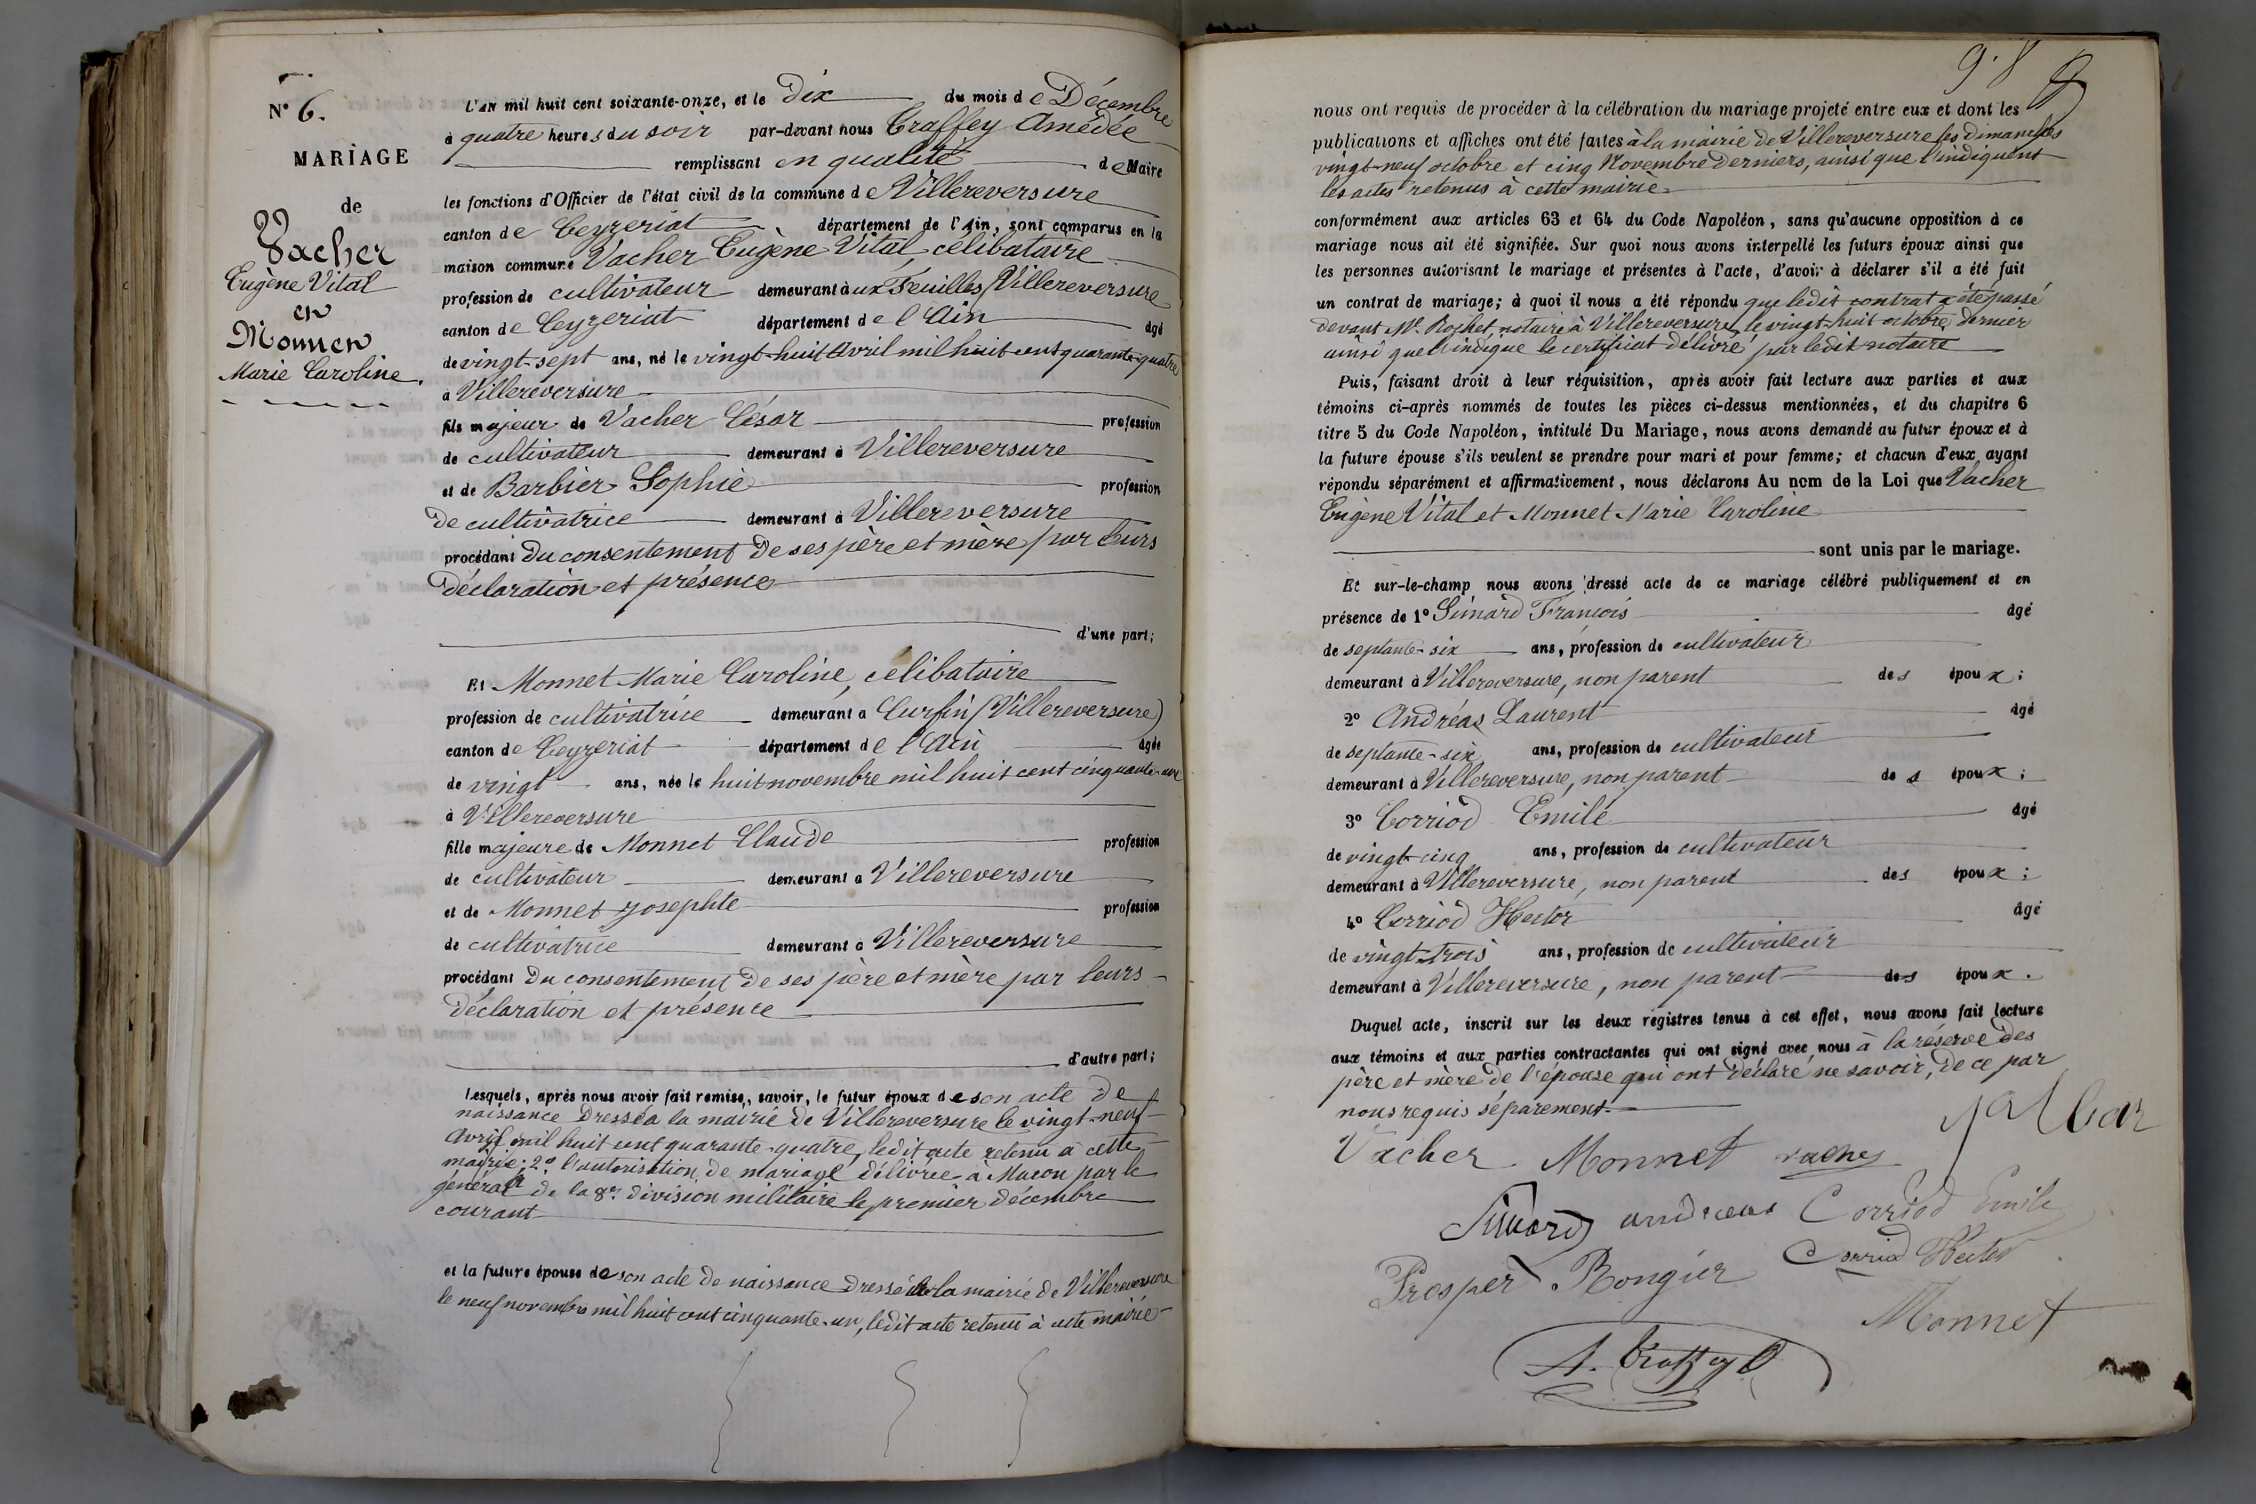 N° 6.
MARIAGE
de
Vacher
Eugène Vital
en
Monnen
Marie Caroline.
L'AN mil huit cent soixante-onze, et le Dix du mois de Décembre
à quatre heures du soir par-devant nous Craffey Amédée
remplissant en qualité de Maire
les fonctions d'Officier de l'état civil de la commune de Villereversure
canton de Ceyzeriat département de l'Ain, sont comparus en la
maison commune Vacher Eugène Vital, célibataire
profession de cultivateur demeurant à ux Feuilles (Villereversure
canton de Ceyzeriat département de l'Ain âgé
de vingt-sept ans, né le vingt-huit Avril mil huit cent quarante-quatre
à Villereversure
fils majeur de Vacher César profession
de cultivateur demeurant à Villereversure
et de Barbier Sophie profession
de cultivatrice demeurant à Villereversure
procédant Du consentement De ses père et mère par leurs
Déclaration et présence
d'une part;
Et Monnet Marie Caroline, célibataire
profession de cultivatrice demeurant à Curfin (Villereversure)
canton de Ceyzeriat département de l'Ain âgée
de vingt ans, née le huit novembre mil huit cent cinquante-un
à Villereversure
fille majeure de Monnet Claude profession
de cultivateur demeurant à Villereversure
et de Monnet Josephte profession
de cultivatrice demeurant à Villereversure
procédant Du consentement De ses père et mère par leurs
Déclaration et présence
d'autre part;
Lesquels, après nous avoir fait remise, savoir, le futur époux de son acte De
naissance Dressé à la mairie De Villereversure le vingt-neuf
Avril mil huit cent quarante-quatre, ledit acte retenu à cette
mairie; 2° l'autorisation de mariage délivrée à Macon par le
général de la 8e division militaire le premier décembre
courant
et la future épouse de son acte De naissance Dressé à la mairie de Villereversure
le neuf novembre mil huit cent cinquante-un, ledit acte retenu à cette mairie
nous ont requis de procéder à la célébration du mariage projeté entre eux et dont les
publications et affiches ont été faites à la mairie de Villereversure les dimanches
vingt-neuf octobre et cinq Novembre Derniers, ainsi que l'indiquent
les actes retenus à cette mairie
conformément aux articles 63 et 64 du Code Napoléon, sans qu'aucune opposition à ce
mariage nous ait été signifiée. Sur quoi nous avons interpellé les futurs époux ainsi que
les personnes autorisant le mariage et présentes à l'acte, d'avoir à déclarer s'il a été fait
un contrat de mariage; à quoi il nous a été répondu que ledit contrat a été passé
devant Me. Rochet, notaire à Villereversure, le vingt-huit octobre dernier
ainsi que l'indique le certificat délivré par ledit notaire
Puis, faisant droit à leur réquisition, après avoir fait lecture aux parties et aux
témoins ci-après nommés de toutes les pièces ci-dessus mentionnées, et du chapitre 6
titre 5 du Code Napoléon, intitulé Du Mariage, nous avons demandé au futur époux et à
la future épouse s'ils veulent se prendre pour mari et pour femme; et chacun d'eux ayant
répondu séparément et affirmativement, nous déclarons Au nom de la Loi que Vacher
Eugène Vital et Monnet Marie Caroline
sont unis par le mariage.
Et sur-le-champ nous avons dressé acte de ce mariage célébré publiquement et en
présence de 1° Simard François âgé
de septante-six ans, profession de cultivateur
demeurant à Villereversure, non parent des époux;
2° Andréas Laurent âgé
de septante-six ans, profession de cultivateur
demeurant à Villereversure, non parent des époux;
3° Corriod Emile âgé
de vingt-cinq ans, profession de cultivateur
demeurant à Villereversure, non parent des époux;
4° Corriod Hector âgé
de vingt-trois ans, profession de cultivateur
demeurant à Villereversure, non parent des époux.
Duquel acte, inscrit sur les deux registres tenus à cet effet, nous avons fait lecture
aux témoins et aux parties contractantes qui ont signé avec nous à la réserve des
père et mère de l'épouse qui ont déclaré ne savoir, de ce par
nous requis séparement.
Vacher Monnet vacher
Simard andreas Corriod Emile
Prosper Rongier Corriod Hector
Monnet